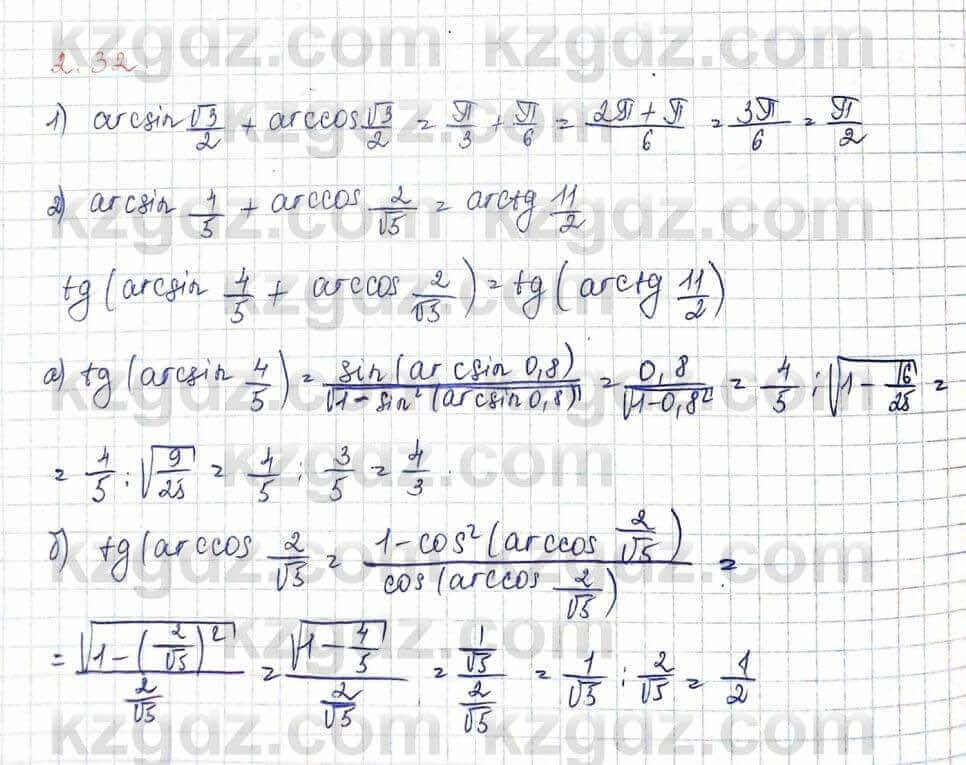 2.32
1) arcsin √3/2 + arccos √3/2 = π/3 + π/6 = (2π + π)/6 = 3π/6 = π/2
2) arcsin 4/5 + arccos 2/√5 = arctg 11/2
tg(arcsin 4/5 + arccos 2/√5) = tg(arctg 11/2)
а) tg(arcsin 4/5) = sin(arcsin 0,8)/√(1-sin²(arcsin 0,8)) = 0,8/√(1-0,8²) = 4/5 : √(1 - 16/25) =
= 4/5 : √(9/25) = 4/5 : 3/5 = 4/3
б) tg(arccos 2/√5 = 1-cos²(arccos 2/√5)/cos(arccos 2/√5) =
= √(1-(2/√5)²)/(2/√5) = √(1-4/5)/(2/√5) = (1/√5)/(2/√5) = 1/√5 : 2/√5 = 1/2
kzgdz.com